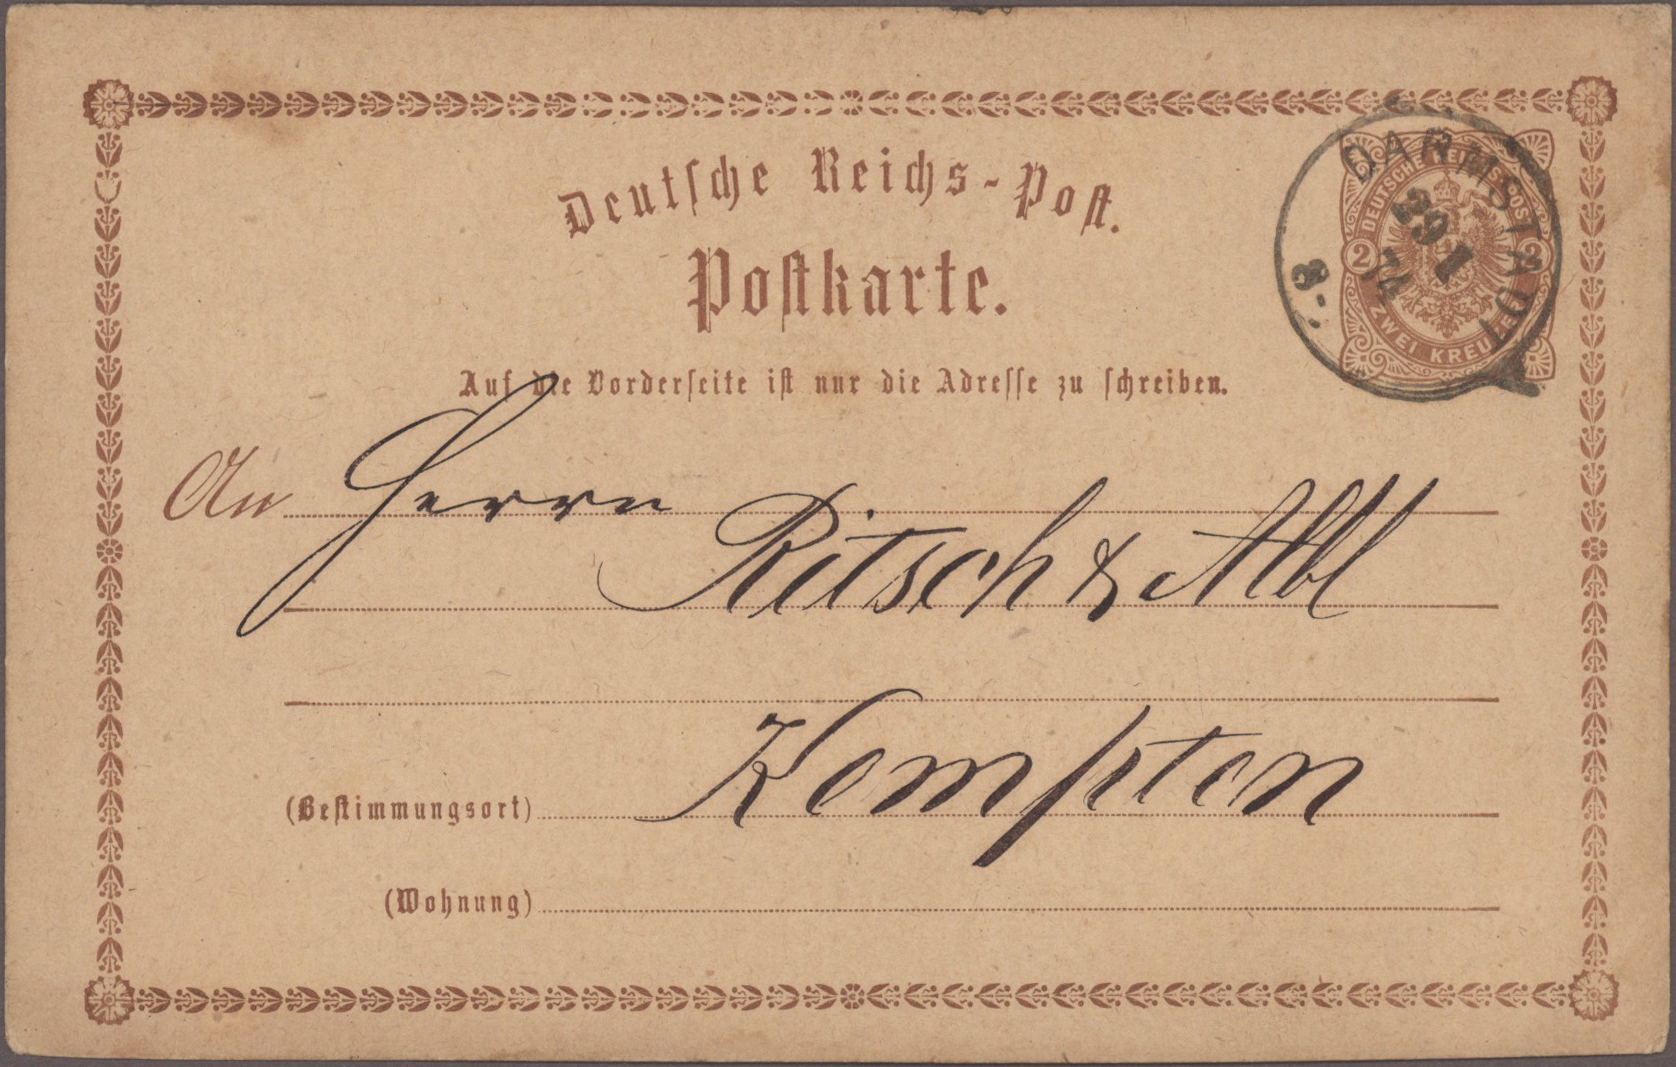 Deutsche Reichs-Post.
Postkarte.
Auf die Vorderseite ist nur die Adresse zu schreiben.
DEUTSCHE REICHSPOST
2 2
ZWEI KREUZER
DARMSTADT
29 1
74
8-
An Herrn
Ritsch & Abl
Kempten
(Bestimmungsort)
(Wohnung)